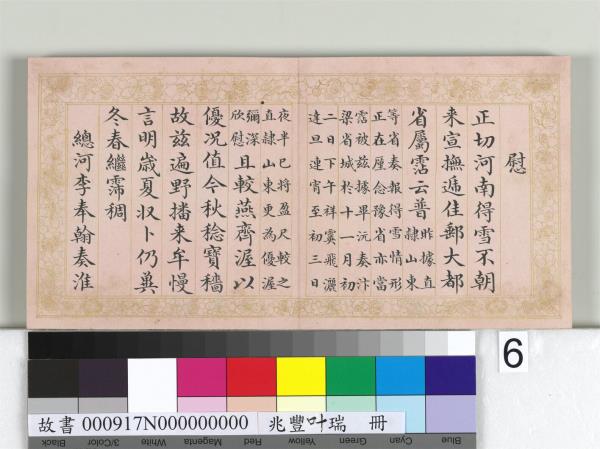 慰
正切河南得雪不朝
来宣撫遞佳郵大都
省屬霑云普昨據直
隸山東
等省奏報得雪情形
正在厪念豫省亦當
霑被兹據畢沅奏汴
梁省城於十一月初
二日下午祥霙飛灑
達旦連宵至初三日
夜半已將盈尺較之
直隸山東更為優渥
彌深
欣慰且較燕齊渥以
優况值今秋稔寶穡
故兹遍野播来牟慢
言明歲夏収卜仍兾
冬春繼霈稠
總河李奉翰奏淮
6
故書 000917N000000000 兆豐叶瑞 冊
Black 3/Color White Magenta Red Yellow Green Cyan Blue